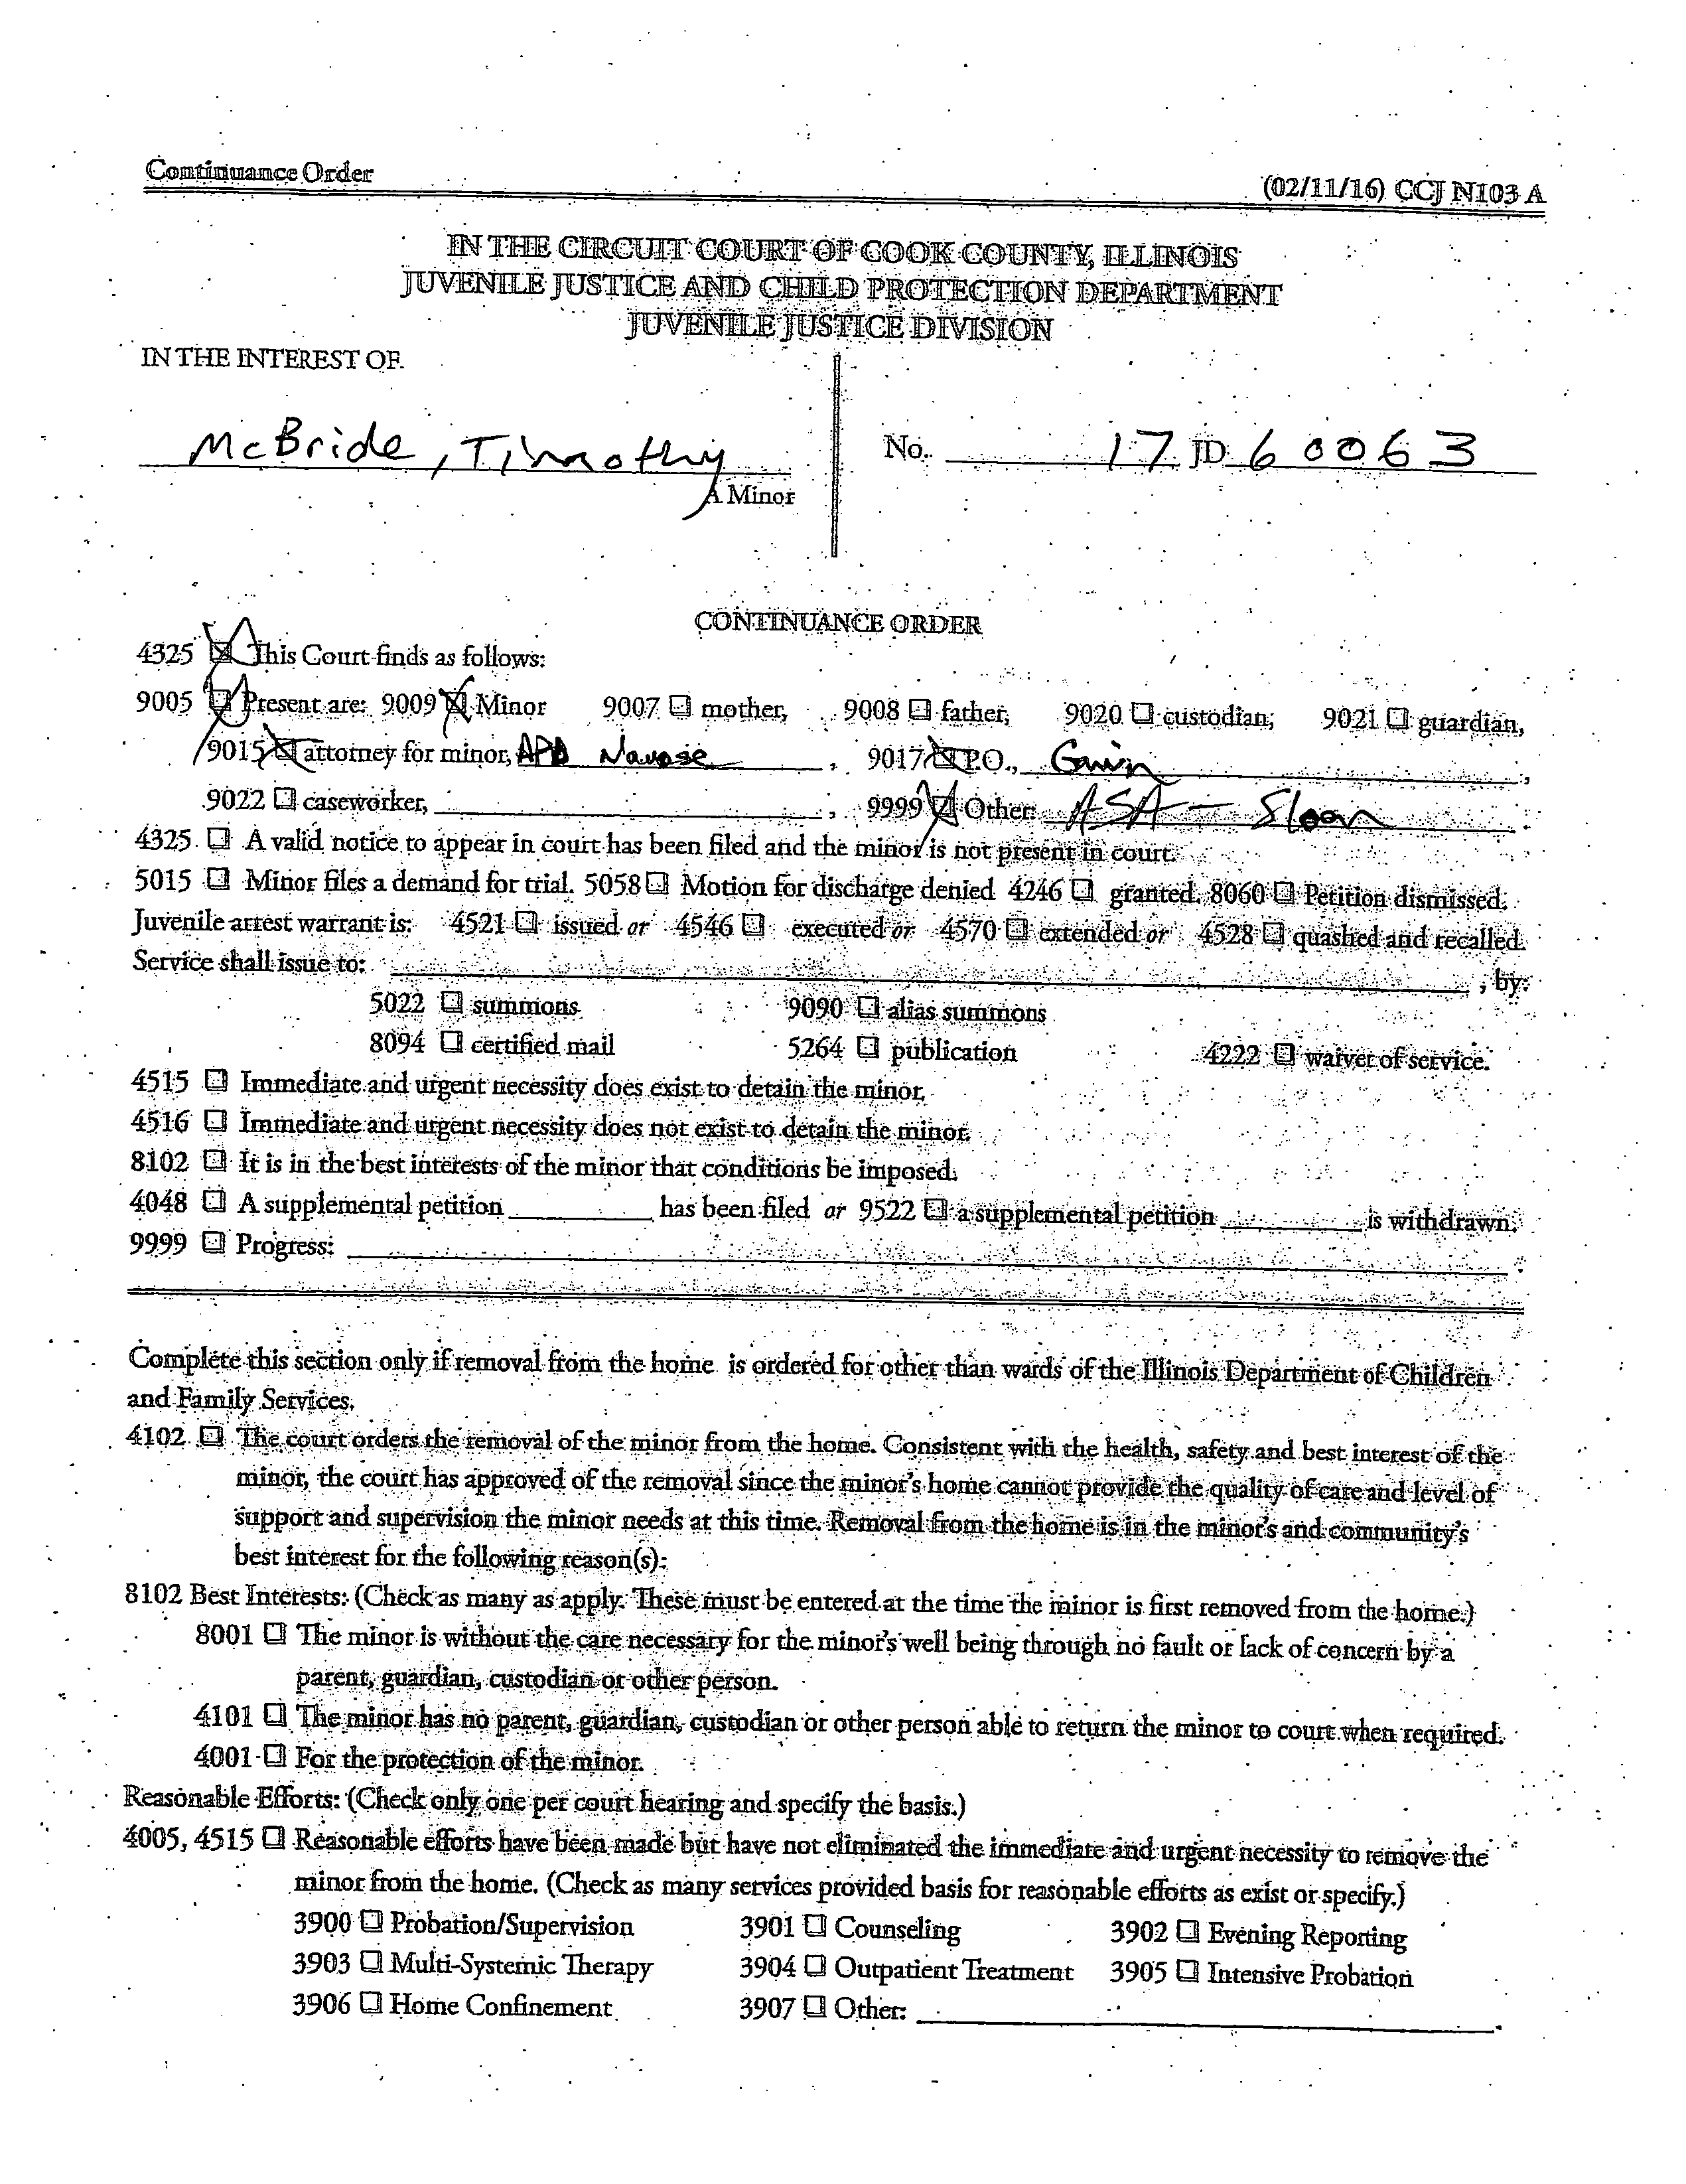 Continuance Order (02/11/16) CCJ N103 A
IN THE CIRCUIT COURT OF COOK COUNTY, ILLINOIS
JUVENILE JUSTICE AND CHILD PROTECTION DEPARTMENT
JUVENILE JUSTICE DIVISION
IN THE INTEREST OF
McBride, Timothy No. 17 JD 60063
A Minor
CONTINUANCE ORDER
4325 ☒ This Court finds as follows:
9005 ☒ Present are: 9009 ☒ Minor 9007 ☐ mother, 9008 ☐ father, 9020 ☐ custodian, 9021 ☐ guardian,
9015 ☒ attorney for minor, APD , 9017 ☒ P.O., ,
9022 ☐ caseworker, , 9999 ☒ Other: ASA - Sloan .
4325 ☐ A valid notice to appear in court has been filed and the minor is not present in court.
5015 ☐ Minor files a demand for trial. 5058 ☐ Motion for discharge denied 4246 ☐ granted. 8060 ☐ Petition dismissed.
Juvenile arrest warrant is: 4521 ☐ issued or 4546 ☐ executed or 4570 ☐ extended or 4528 ☐ quashed and recalled.
Service shall issue to: , by:
5022 ☐ summons 9090 ☐ alias summons
8094 ☐ certified mail 5264 ☐ publication 4222 ☐ waiver of service.
4515 ☐ Immediate and urgent necessity does exist to detain the minor.
4516 ☐ Immediate and urgent necessity does not exist to detain the minor.
8102 ☐ It is in the best interests of the minor that conditions be imposed.
4048 ☐ A supplemental petition has been filed or 9522 ☐ a supplemental petition is withdrawn.
9999 ☐ Progress: .
Complete this section only if removal from the home is ordered for other than wards of the Illinois Department of Children
and Family Services.
4102 ☐ The court orders the removal of the minor from the home. Consistent with the health, safety and best interest of the
minor, the court has approved of the removal since the minor's home cannot provide the quality of care and level of
support and supervision the minor needs at this time. Removal from the home is in the minor's and community's
best interest for the following reason(s):
8102 Best Interests: (Check as many as apply. These must be entered at the time the minor is first removed from the home.)
8001 ☐ The minor is without the care necessary for the minor's well being through no fault or lack of concern by a
parent, guardian, custodian or other person.
4101 ☐ The minor has no parent, guardian, custodian or other person able to return the minor to court when required.
4001 ☐ For the protection of the minor.
Reasonable Efforts: (Check only one per court hearing and specify the basis.)
4005, 4515 ☐ Reasonable efforts have been made but have not eliminated the immediate and urgent necessity to remove the
minor from the home. (Check as many services provided basis for reasonable efforts as exist or specify.)
3900 ☐ Probation/Supervision 3901 ☐ Counseling 3902 ☐ Evening Reporting
3903 ☐ Multi-Systemic Therapy 3904 ☐ Outpatient Treatment 3905 ☐ Intensive Probation
3906 ☐ Home Confinement 3907 ☐ Other: .